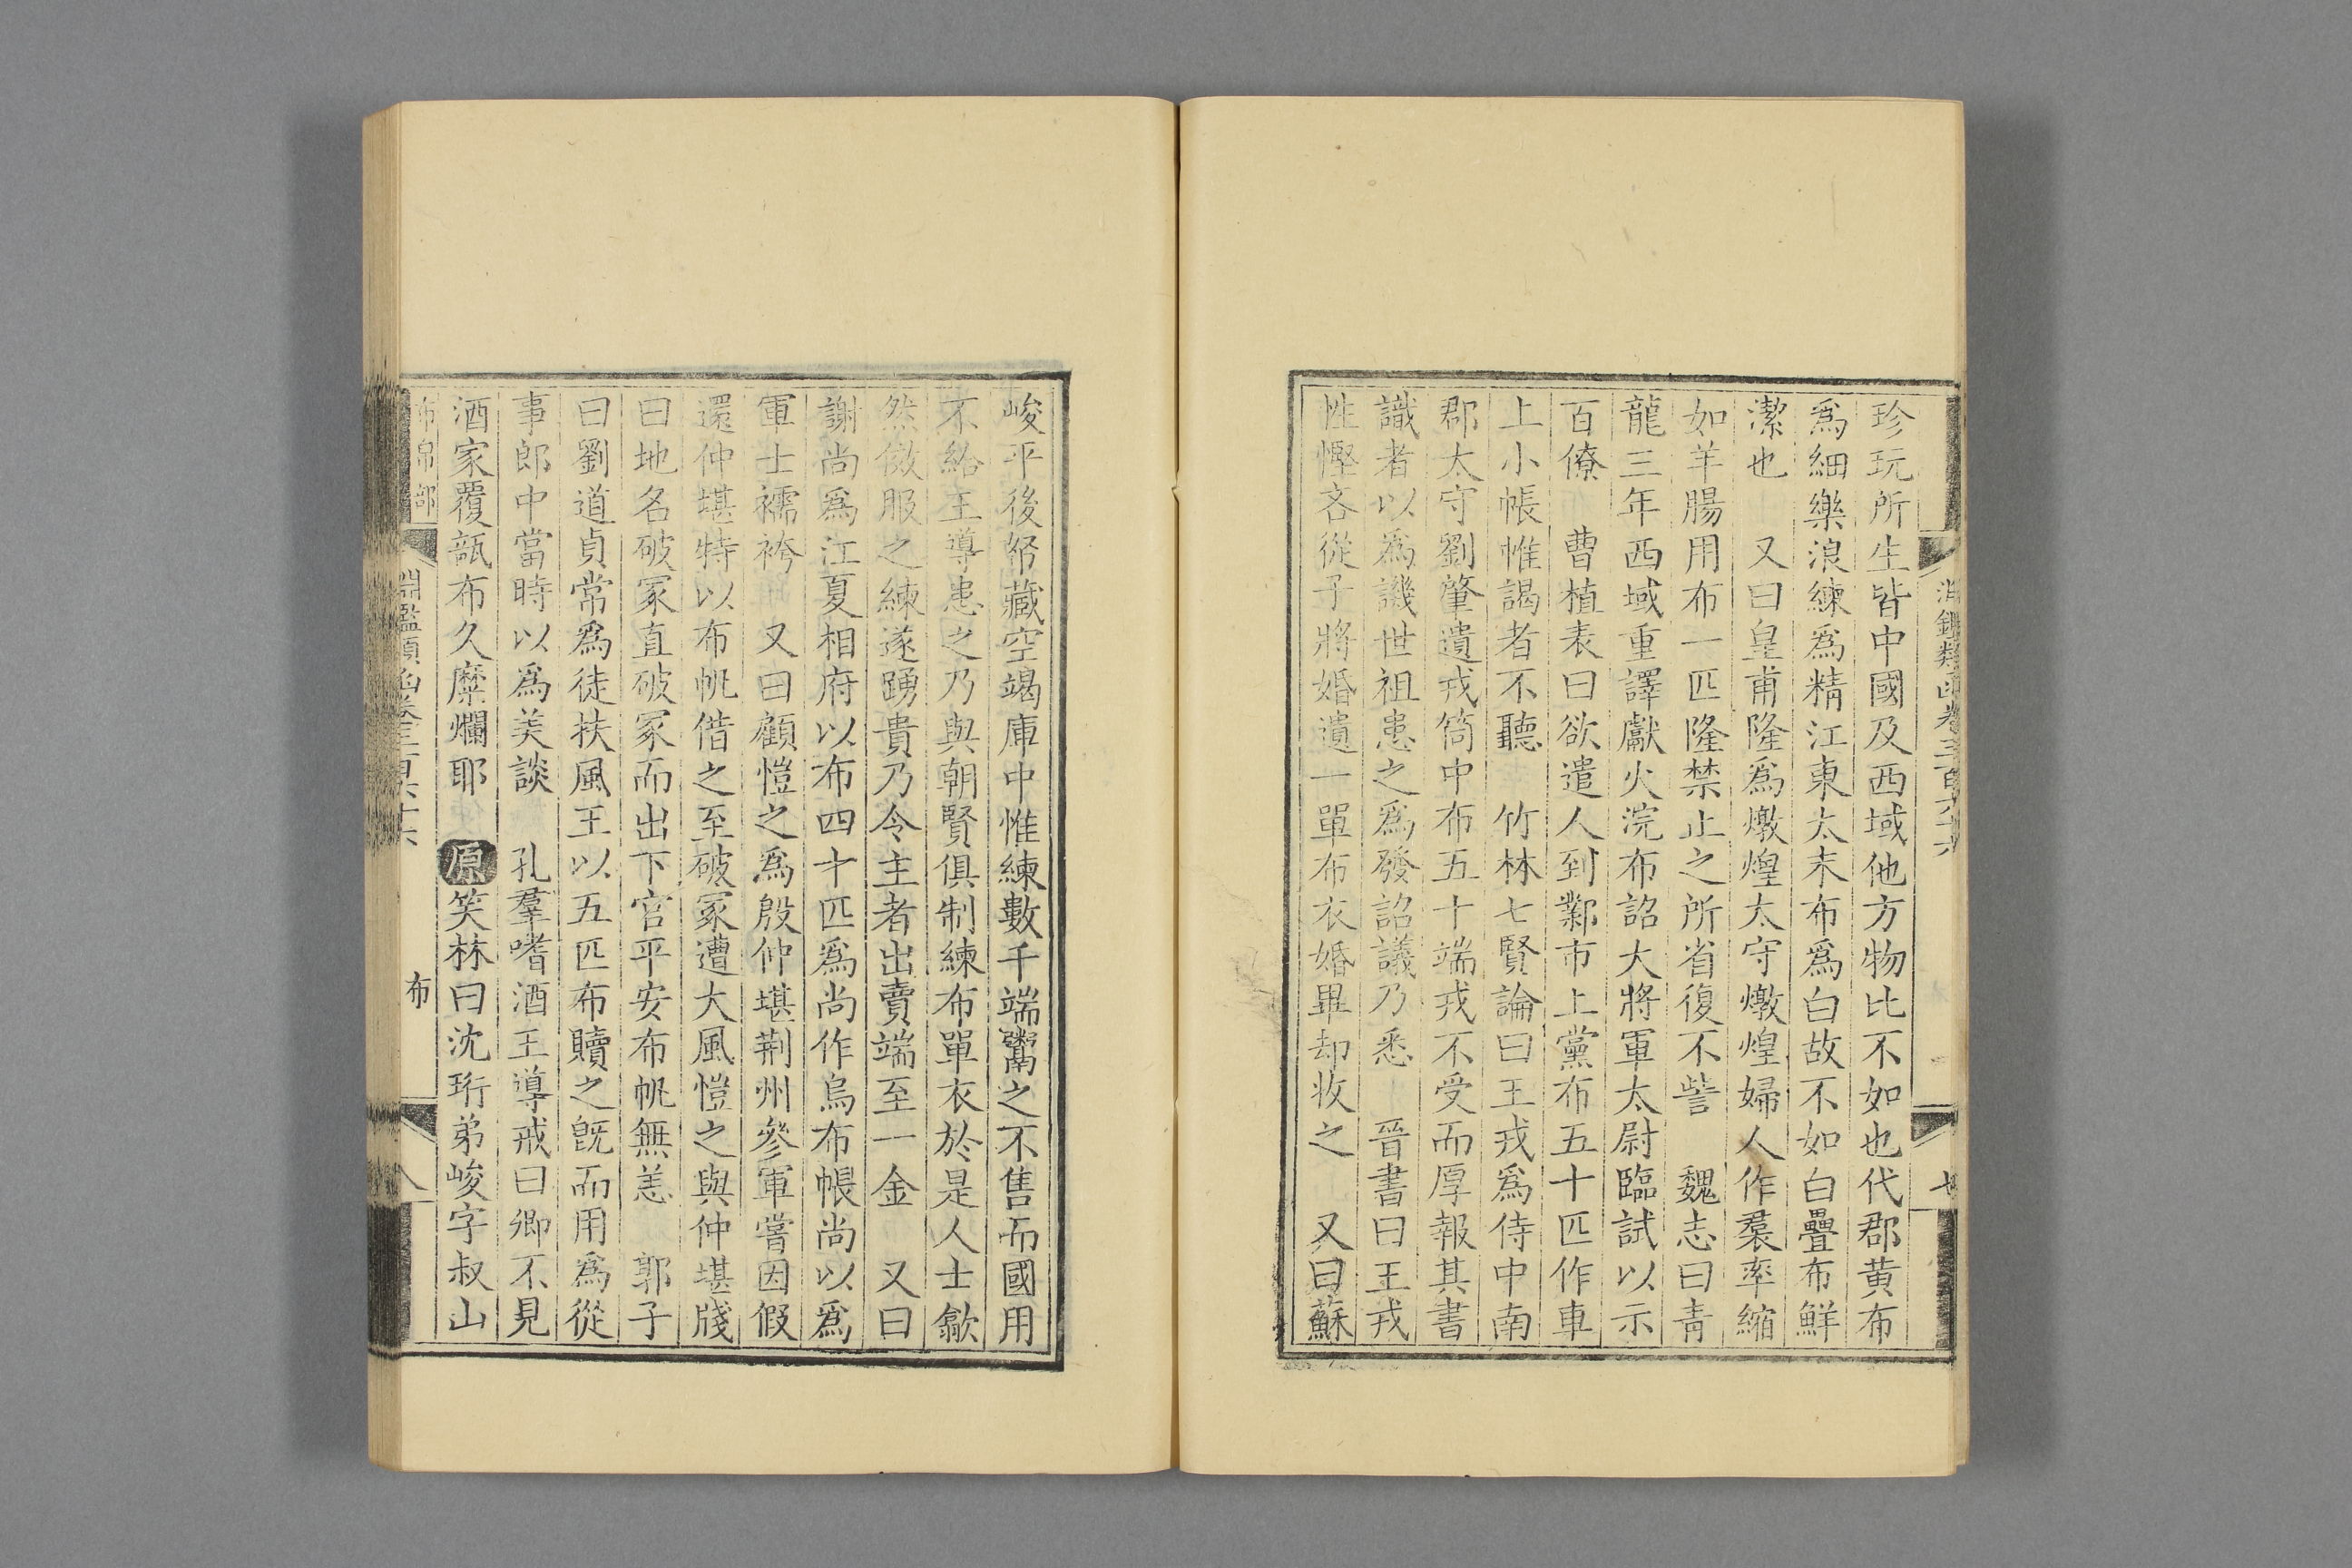 珍玩所生皆中國及西域他方物比不如也代郡黄布
爲細樂浪練爲精江東太末布爲白故不如白疊布鮮
潔也　又曰皇甫隆爲燉煌太守燉煌婦人作裠率縮
如羊腸用布一匹隆禁止之所省復不訾　魏志曰青
龍三年西域重譯獻火浣布詔大將軍太尉臨試以示
百僚　曹植表曰欲遣人到鄴市上黨布五十匹作車
上小帳惟謁者不聽　竹林七賢論曰王戎爲侍中南
郡太守劉肇遺戎筒中布五十端戎不受而厚報其書
識者以爲譏世祖患之爲發詔議乃悉　晉書曰王戎
性慳吝從子將婚遺一單布衣婚畢却收之　又曰蘇
淵鑑類函卷三百六十六
七
峻平後帑藏空竭庫中惟練數千端鬻之不售而國用
不給王導患之乃與朝賢俱制練布單衣於是人士歙
然倣服之練遂踴貴乃令主者出賣端至一金　又曰
謝尚爲江夏相府以布四十匹爲尚作烏布帳尚以爲
軍士襦袴　又曰顧愷之爲殷仲堪荆州參軍嘗因假
還仲堪特以布帆借之至破冢遭大風愷之與仲堪牋
曰地名破冢直破冢而出下官平安布帆無恙　郭子
曰劉道貞常爲徒扶風王以五匹布贖之旣而用爲從
事郎中當時以爲美談　孔羣嗜酒王導戒曰卿不見
酒家覆瓿布久糜爛耶　原笑林曰沈珩弟峻字叔山
布帛部
淵鑑類函卷三百六十六
布
八